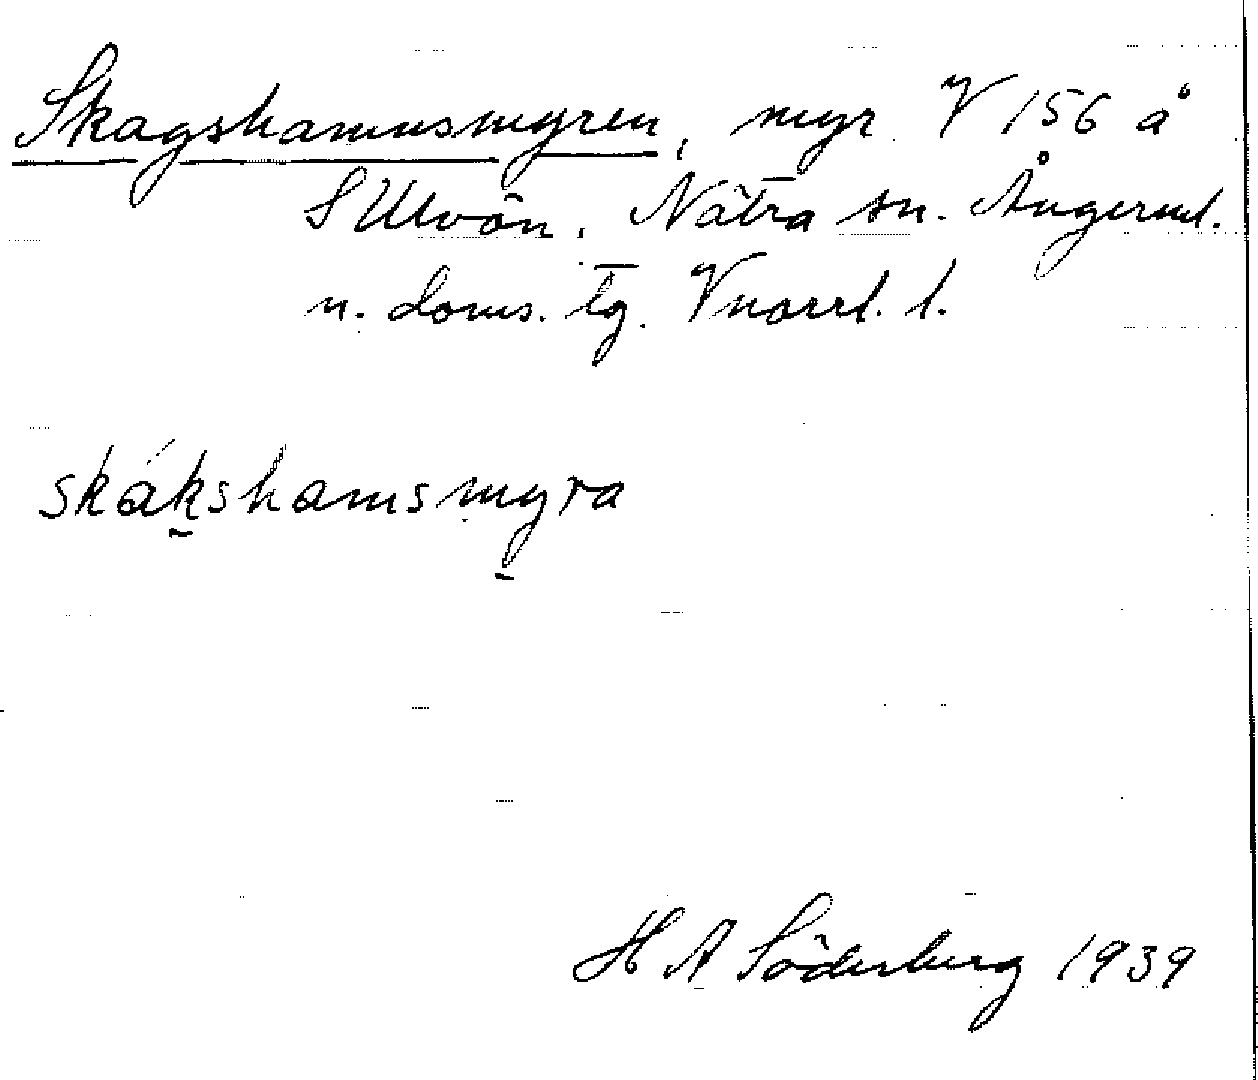 Skagshamnsmyren, myr V 156 å
S Ulvön, Nätra sn. Ångerml.
n. doms. tg. Vnorrl. l.
skákshamsmyra
H A Söderberg 1939